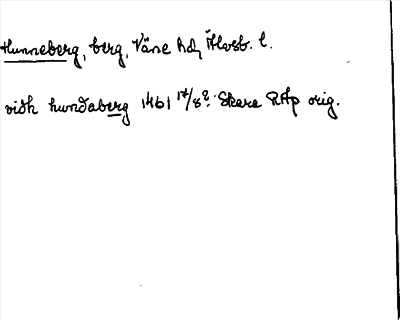 Hunneberg, berg, Väne hd, Älvsb. l.
vidh hundaberg 1461 17/8? Skara RAp orig.